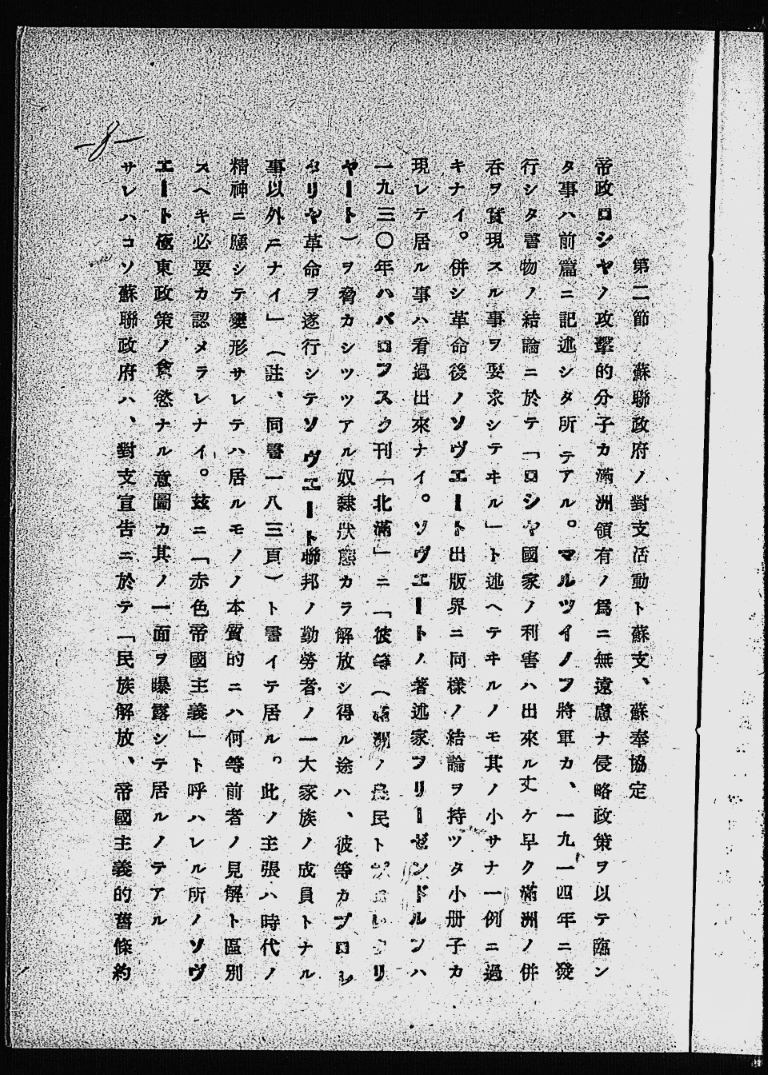 第二節 蘇聯政府ノ對支活動ト蘇支、蘇奉協定
帝政ロシヤノ攻擊的分子カ滿洲領有ノ爲ニ無遠慮ナ侵略政策ヲ以テ臨ン
タ事ハ前篇ニ記述シタ所テアル。マルツイノフ將軍カ、一九一四年ニ發
行シタ書物ノ結論ニ於テ「ロシヤ國家ノ利害ハ出來ル丈ケ早ク滿洲ノ併
呑ヲ實現スル事ヲ要求シテヰル」ト述ヘテヰルノモ其ノ小サナ一例ニ過
キナイ。併シ革命後ノソヴエート出版界ニ同樣ノ結論ヲ持ツタ小册子カ
現レテ居ル事ハ看過出來ナイ。ソヴエートノ著述家フリーゼンドルンハ
一九三〇年ハバロフスク刊「北滿」ニ「彼等(滿洲ノ農民ト プロレタリ
ヤート)ヲ脅カシツツアル奴隸狀態カラ解放シ得ル途ハ、彼等カプロレ
タリヤ革命ヲ遂行シテソヴエート聯邦ノ勤勞者ノ一大家族ノ成員トナル
事以外ニナイ」(註、同書一八三頁)ト書イテ居ル。此ノ主張ハ時代ノ
精神ニ應シテ變形サレテハ居ルモノノ本質的ニハ何等前者ノ見解ト區別
スヘキ必要カ認メラレナイ。茲ニ「赤色帝國主義」ト呼ハレル所ノソヴ
エート極東政策ノ貪慾ナル意圖カ其ノ一面ヲ曝露シテ居ルノテアル
サレハコソ蘇聯政府ハ、對支宣告ニ於テ「民族解放、帝國主義的舊條約
-8-